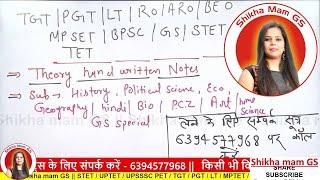 TGT | PGT | LT | RO/ARO | BEO
MPSET | BPSC | GS | STET
TET
Shikha Mam GS
⇒ Theory hand written Notes
⇒ Sub → History, Political Science, Eco,
Geography | hindi | Bio | PCZ | Art | home Science
GS special
लेने के लिए सम्पर्क सूत्र
6394577968 पर
कॉल
स के लिए संपर्क करें - 6394577968 || किसी भी वि
Shikha mam GS || STET / UPTET / UPSSSC PET / TGT / PGT / LT / MPTET /
Shikha mam GS
SHARE
SUBSCRIBE